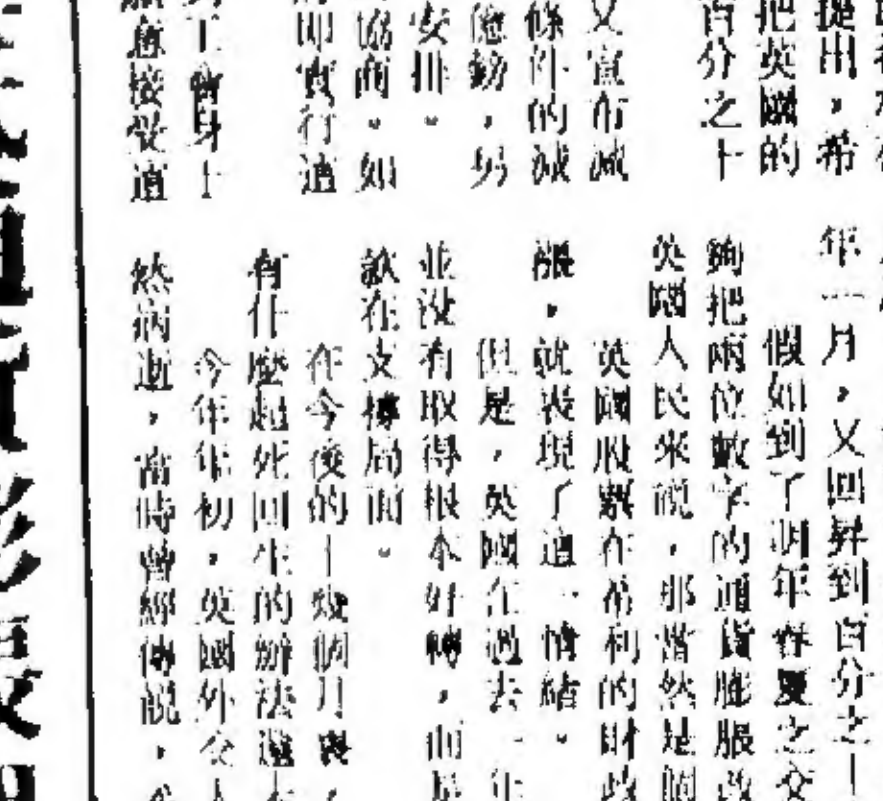 提出,希
把英國的
百分之十
又宣布減
條件的減
億鎊,另
安排。
協商。如
即實行這
工會身上
意接受這
年一月,又回昇到百分之十
假如到了明年春夏之交
夠把兩位數字的通貨膨脹改
英國人民來說,那當然是個
英國股票在希利的財政
漲,就表現了這一情緒。
但是,英國在過去一年
並沒有取得根本好轉,而是
款在支撐局面。
在今後的十幾個月裏,
有什麼起死回生的辦法還
今年年初,英國外交
然病逝,當時曾經傳說,